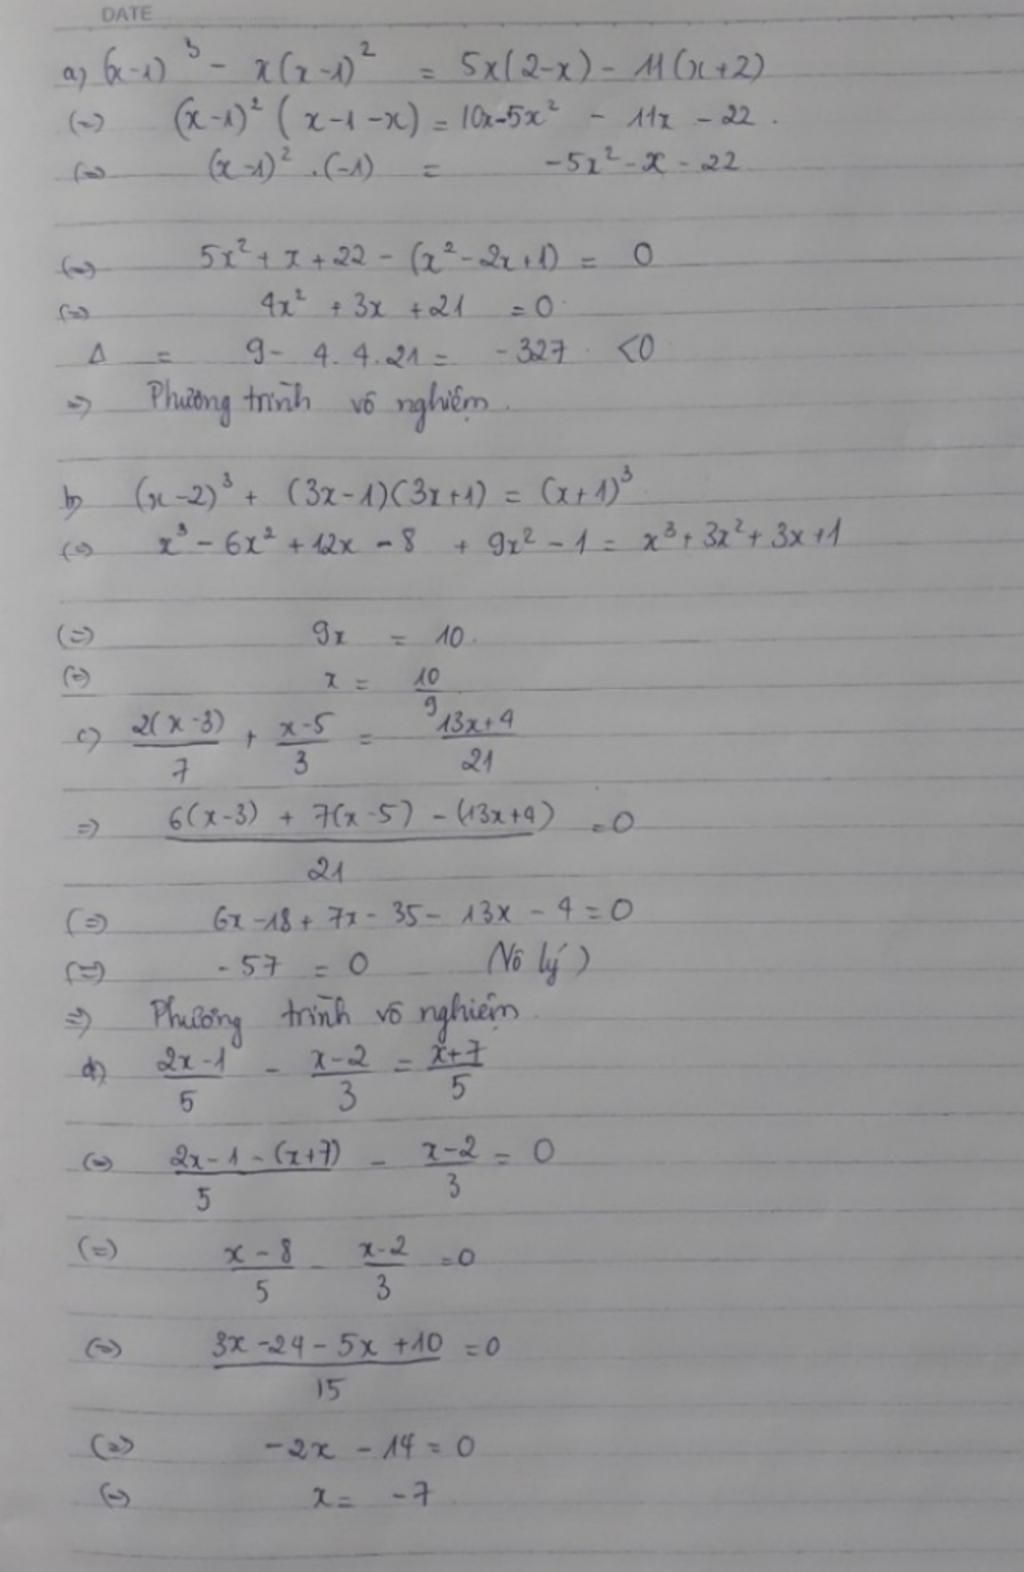 DATE
a) (x-1)³ - x(x-1)² = 5x(2-x) - 11(x+2)
(=) (x-1)² (x-1-x) = 10x-5x² - 11x - 22.
(=) (x-1)² .(-1) = -5x² - x - 22
(=) 5x² + x + 22 - (x² - 2x+1) = 0
(=) 4x² + 3x + 21 = 0.
Δ = 9 - 4.4.21 = -327 <0
=> Phương trình vô nghiệm.
b) (x-2)³ + (3x-1)(3x+1) = (x+1)³.
(=) x³ - 6x² + 12x - 8 + 9x² - 1 = x³ + 3x² + 3x + 1
(=) 9x = 10.
(=) x = 10/9
c) 2(x-3)/7 + x-5/3 = 13x+4/21
=) 6(x-3) + 7(x-5) - (13x+4)/21 = 0
(=) 6x - 18 + 7x - 35 - 13x - 4 = 0
(=) -57 = 0 (Vô lý)
=) Phương trình vô nghiệm.
d) 2x-1/5 - x-2/3 = x+7/5
(=) 2x-1-(x+7)/5 - x-2/3 = 0
(=) x-8/5 - x-2/3 = 0
(=) 3x-24-5x+10/15 = 0
(=) -2x - 14 = 0
(=) x = -7